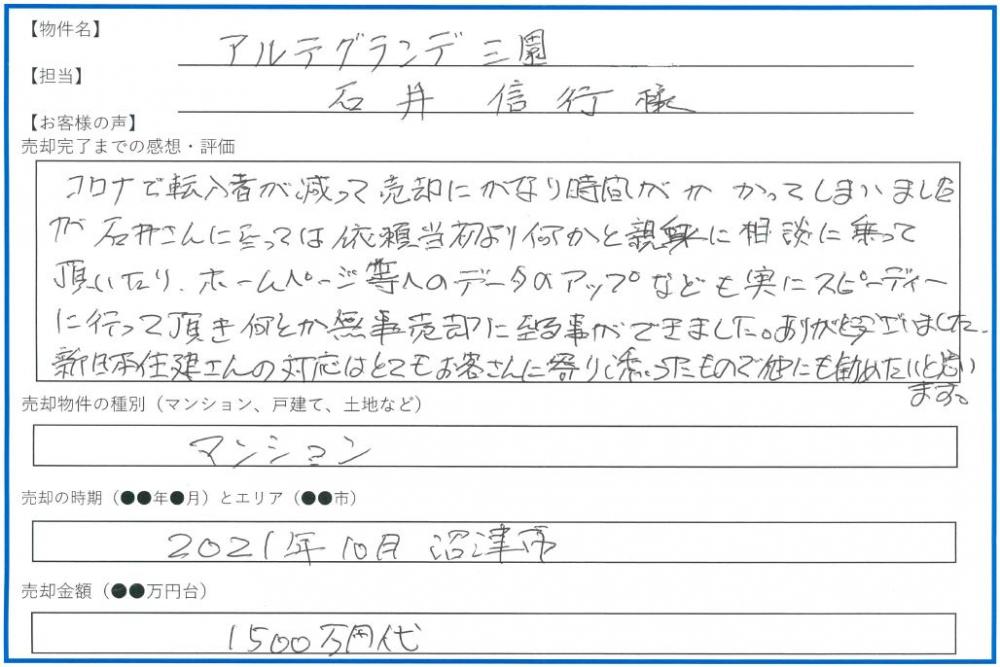 【物件名】
アルテグランデ三園
【担当】
石井 信行様
【お客様の声】
売却完了までの感想・評価
コロナで転入者が減って売却にかなり時間がかかってしまいました
が石井さんに至っては依頼当初より何かと親身に相談に乗って
頂いたり、ホームページ等へのデータのアップなども実にスピーディー
に行って頂き何とか無事売却に至る事ができました。ありがとうございました。
新日本住建さんの対応はとてもお客さんに寄り添ったもので他にも勧めたいと思い
ます。
売却物件の種別（マンション、戸建て、土地など）
マンション
売却の時期（●●年●月）とエリア（●●市）
2021年10月 沼津市
売却金額（●●万円台）
1500万円代